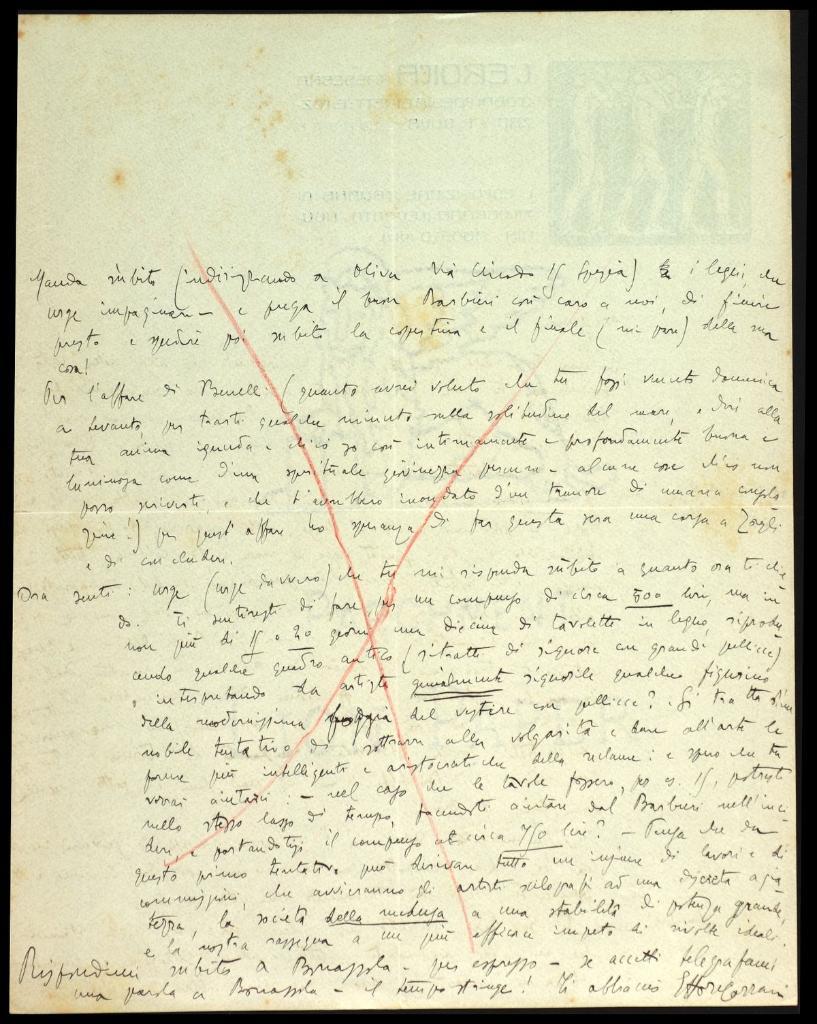 Manda subito (indirizzando a Oliva Via Chiodo 15 Spezia) i legni, che
urge impaginare - e prega il buon Barbieri così caro a noi, di finire
presto e spedire poi subito la copertina e il finale (mi pare) della sua
cosa!
Per l'affare di Benelli (quanto avrei voluto che tu fossi venuto domenica
a Levanto per trarti qualche minuto sulla solitudine del mare, e dir alla
tua anima ignuda e così intimamente e profondamente buona e
luminosa come d'una spirituale giovinezza perenne - alcune cose che non
posso scriverti, e che t'avrebbero inondato d'un tremore di umana
!) per quest'affare ho speranza di far questa sera una corsa a Zoagli
e di concludere.
Ora senti: urge (urge davvero) che tu mi risponda subito a quanto ora ti chie-
do. Ti sentiresti di fare, per un compenso di circa 500 lire, ma in
non più di 15 o 20 giorni una diecina di tavolette in legno, riprodu-
cendo qualche quadro antico (ritratti di signore con grandi pellicce)
e interpretando da artista genialmente signorile qualche figurino
della modernissima foggia del vestire con pellicce? Si tratta d'un
nobile tentativo di sottrarre alla volgarità e dare all'arte le
forme più intelligenti e aristocratiche della reclame: e spero che tu
vorrai aiutarci: - nel caso che le tavole fossero, per es. 15, potresti
nello stesso lasso di tempo, facendoti aiutare dal Barbieri nell'inci-
dere e portandoti il compenso a circa 750 lire? - Pensa che da
questo primo tentativo può derivare tutto un insieme di lavori e di
commissioni, che avvieranno gli artisti silografi ad una discreta agia-
tezza, la società della medusa a una stabilità di potenza grande,
e la nostra rassegna a un più efficace impeto di rivolte ideali.
Rispondimi subito a Bonassola - per espresso - se accetti telegrafami
una parola a Bonassola - il tempo stringe! Ti abbraccio Ettore Cozzani